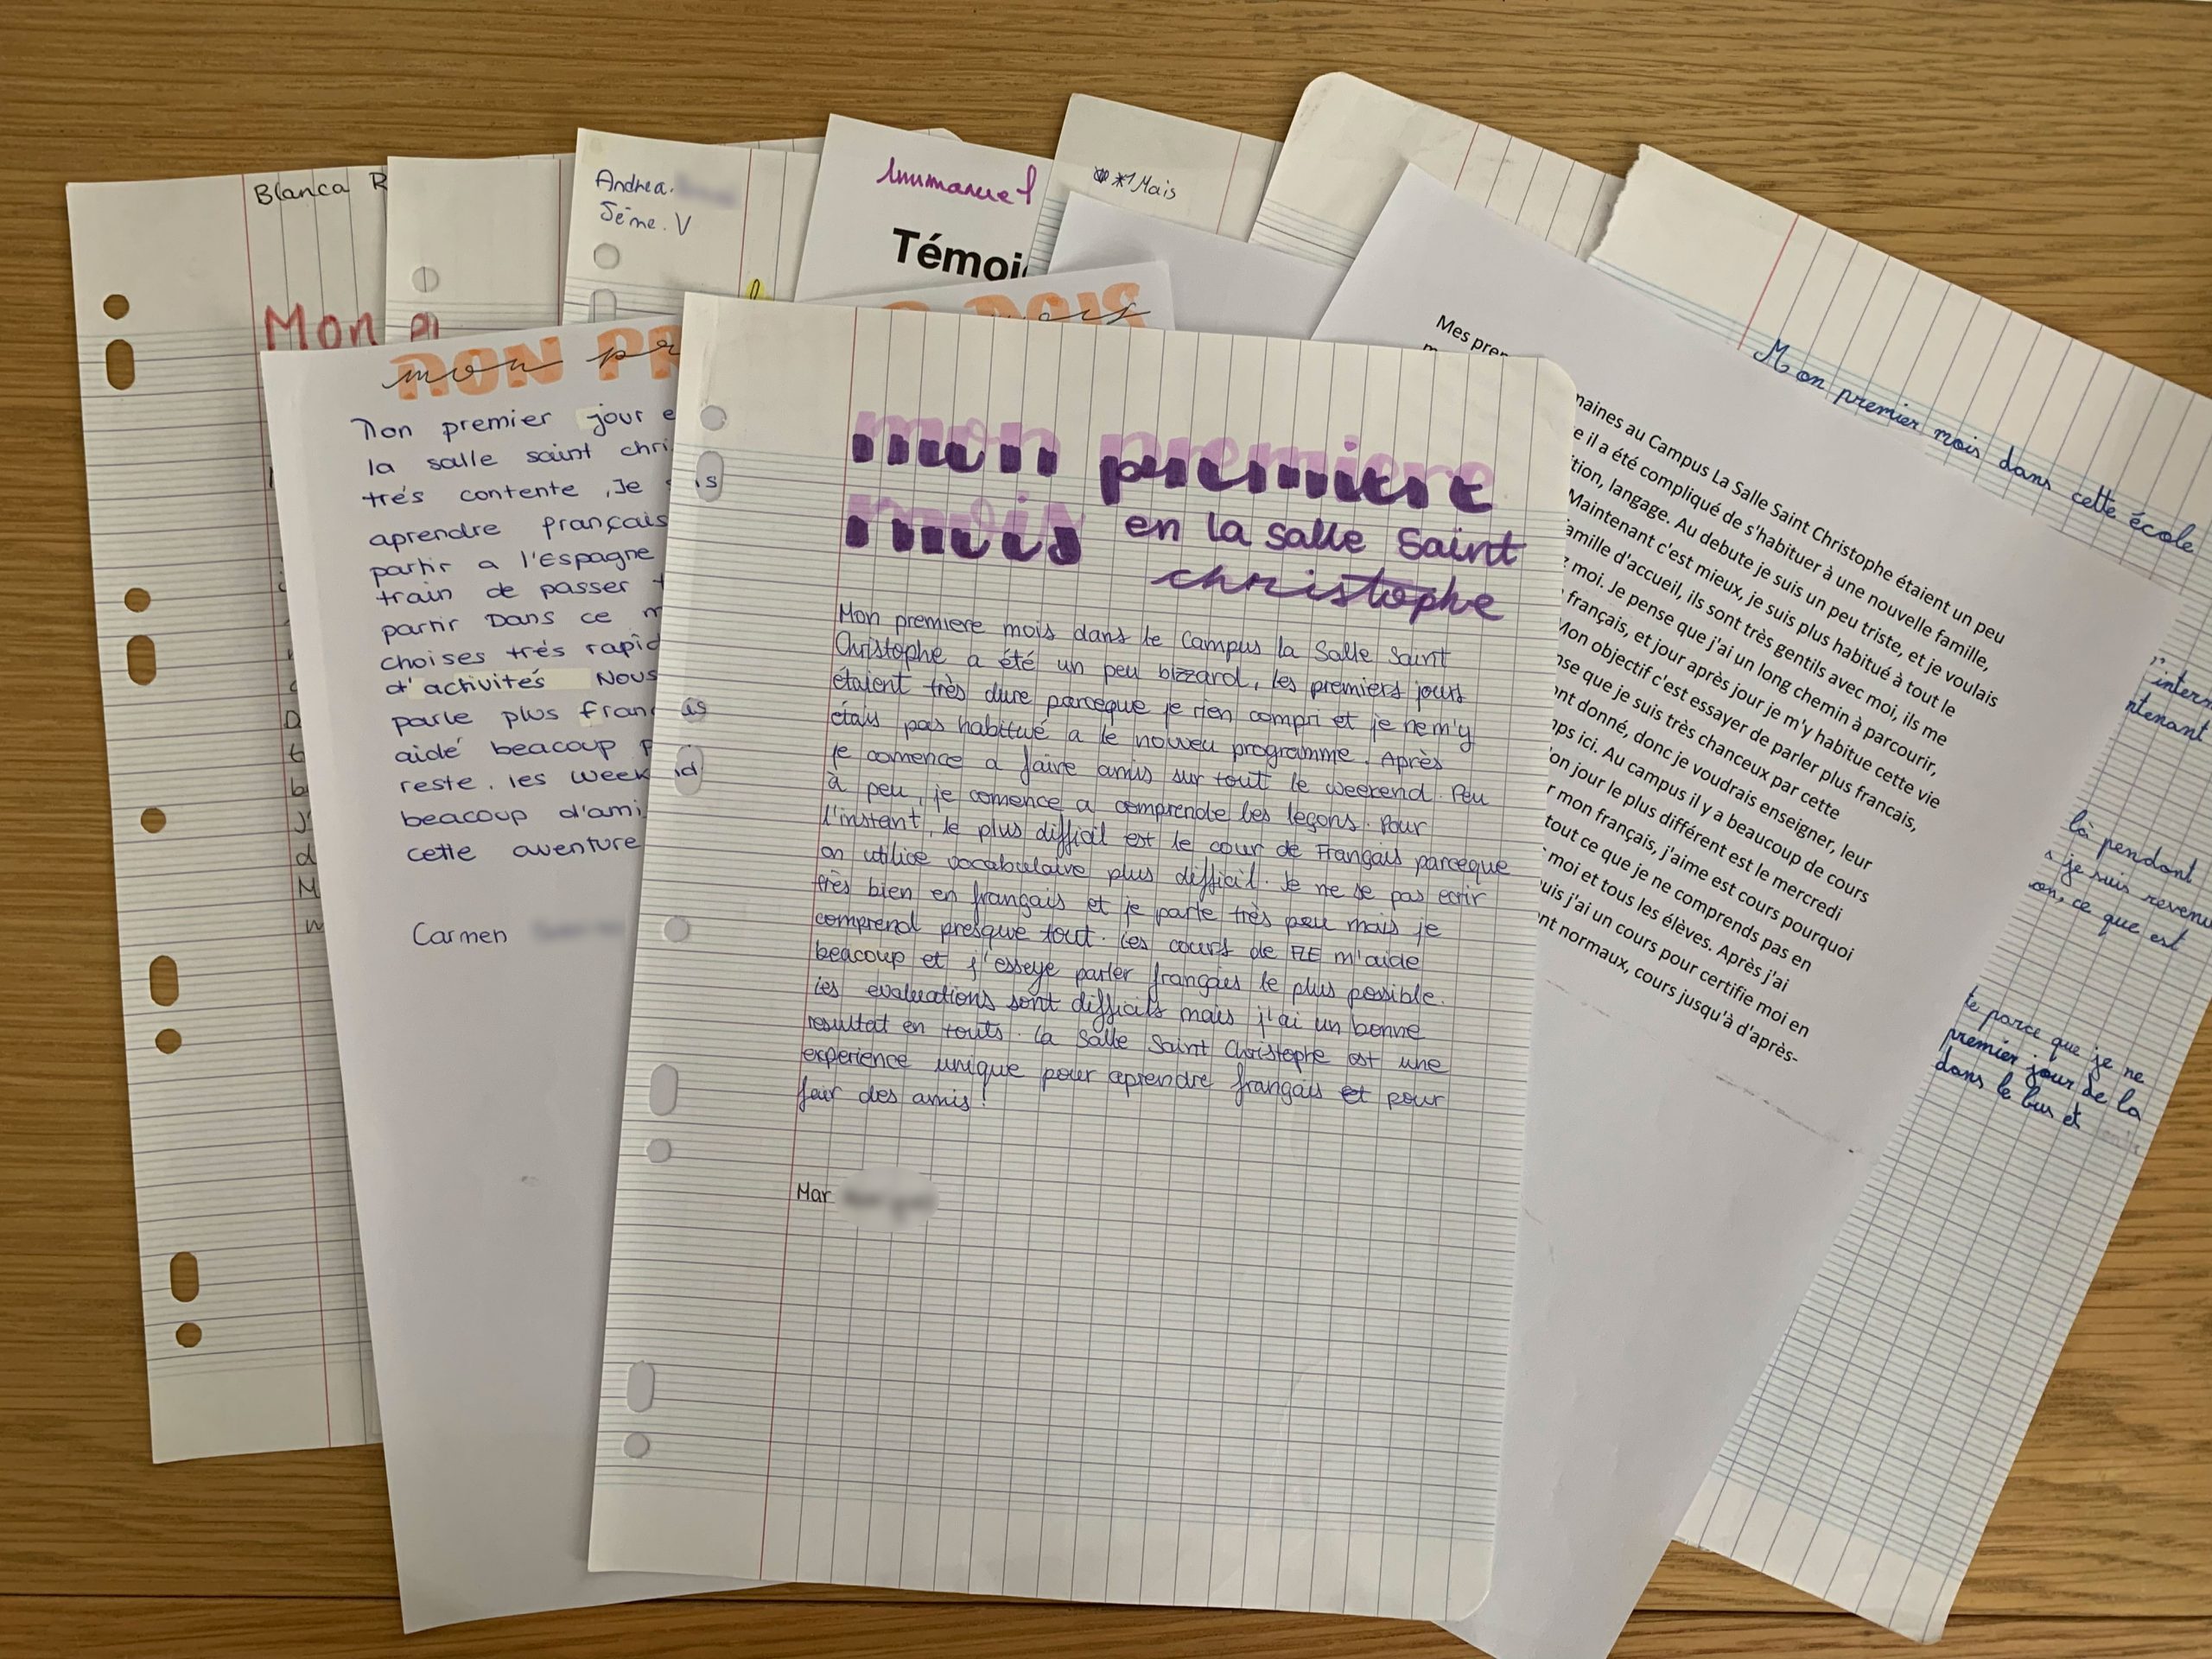 Blanca R
Mon
Andrea.
5ème. V
Témoi
*1 Mais
MON PR
mon pr
Mon premier jour e
la salle saint chri
trés contente, Je
aprendre français
partir a l'Espagne
train de passer
partir Dans ce m
choises trés rapid
d'activités Nous
parle plus fran
aidé beacoup p
reste. les week
beacoup d'ami
cette aventure
Carmen
mon premiere
mois en la salle Saint
christophe
Mon premiere mois dans le Campus la Salle Saint
Christophe a été un peu bizzard, les premiers jours
étaient très dure parceque je rien compri et je ne m'y
étais pas habitué a le nouveu programme. Après
je comence a faire amis sur tout le weekend. Peu
à peu, je comence a comprende les leçons. Pour
l'instant, le plus difficil est le cour de Français parceque
on utilice vocabulaire plus difficil. Je ne se pas ecrir
très bien en français et je parle très peu mais je
comprend presque tout. Les cours de FLE m'aide
beacoup et j'esseye parler français le plus possible.
Les evaluations sont difficils mais j'ai un bonne
resultat en touts. La Salle Saint Christophe est une
experience unique pour aprendre français et pour
fair des amis!
Mar
Mes pre
maines au Campus La Salle Saint Christophe étaient un peu
e il a été compliqué de s'habituer à une nouvelle famille,
ition, langage. Au debute je suis un peu triste, et je voulais
Maintenant c'est mieux, je suis plus habitué à tout le
famille d'accueil, ils sont très gentils avec moi, ils me
moi. Je pense que j'ai un long chemin à parcourir,
français, et jour après jour je m'y habitue cette vie
Mon objectif c'est essayer de parler plus francais,
nse que je suis très chanceux par cette
ont donné, donc je voudrais enseigner, leur
ps ici. Au campus il y a beaucoup de cours
on jour le plus différent est le mercredi
r mon français, j'aime est cours pourquoi
tout ce que je ne comprends pas en
moi et tous les élèves. Après j'ai
uis j'ai un cours pour certifie moi en
nt normaux, cours jusqu'à d'après-
Mon premier mois dans cette école
l'intern
ntenant
là pendant
je suis revenu
on, ce que est
te parce que je ne
premier jour de la
dans le bus et